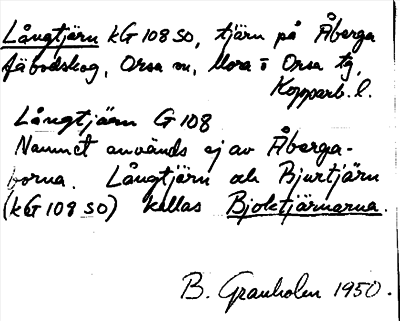 Långtjärn KG 108 SO, tjärn på Åberga
fäbodskog, Orsa sn, Mora o Orsa tg,
Kopparb. l.
Långtjärn G 108
Namnet används ej av Åberga-
borna. Långtjärn och Bjurtjärn
(KG 108 SO) kallas Bjoktjärnarna.
B. Granholm 1950.